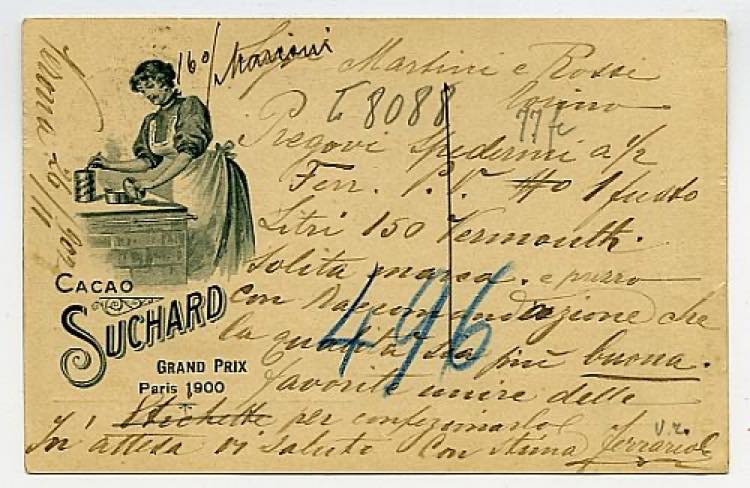 Verona 26/11 902
160/ Marioni
Sigg. Martini e Rossi
Torino
T 8088
77 fc
Pregovi spedirmi a 1/2
Ferr. P. V. No 1 fusto
Litri 150 Vermouth.
Solita marca. e prezzo
con Raccomandazione che
la qualità sia più buona.
496
favorite unire delle
Etichette per confezionarlo
In attesa vi saluto con stima
v. r.
CACAO
SUCHARD
GRAND PRIX
Paris 1900